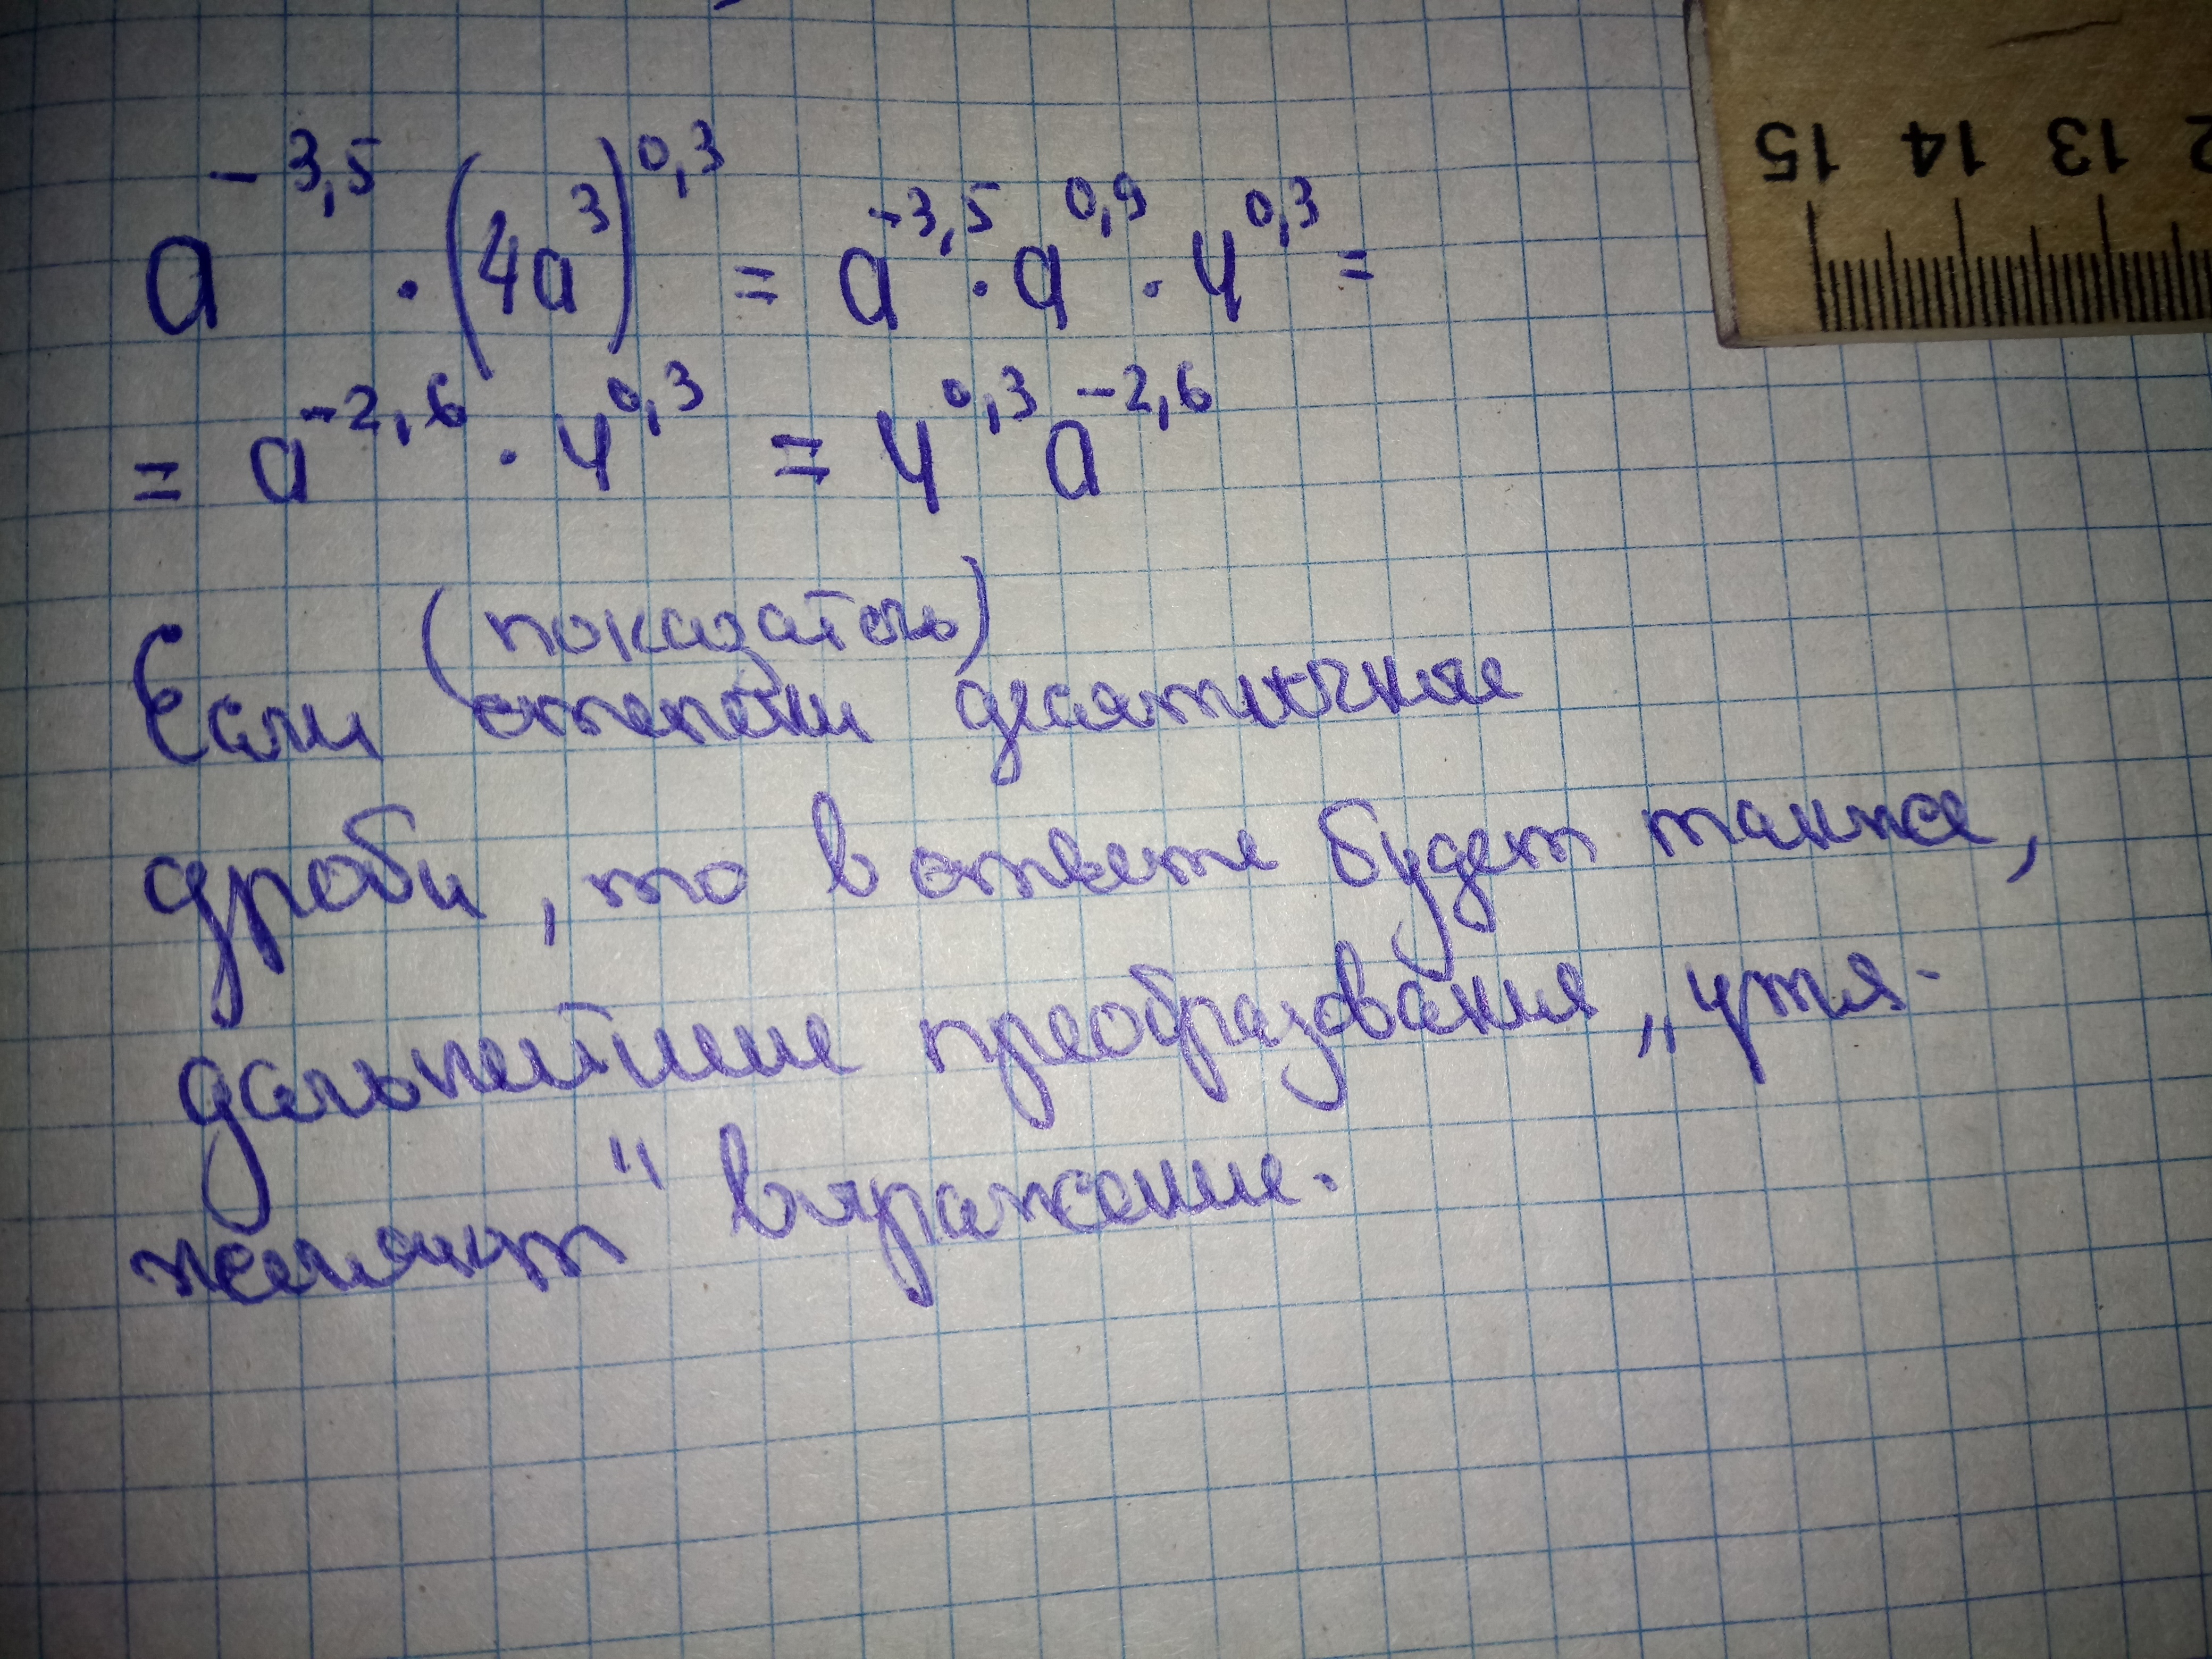 a^{-3,5} · (4a^3)^{0,3} = a^{-3,5} · a^{0,9} · 4^{0,3} =
= a^{-2,6} · 4^{0,3} = 4^{0,3} a^{-2,6}
(показатель)
Если степени десятичные
дроби, то в ответе будет также,
дальнейшие преобразования „утя-
желяют" выражение.
15 14 13 2